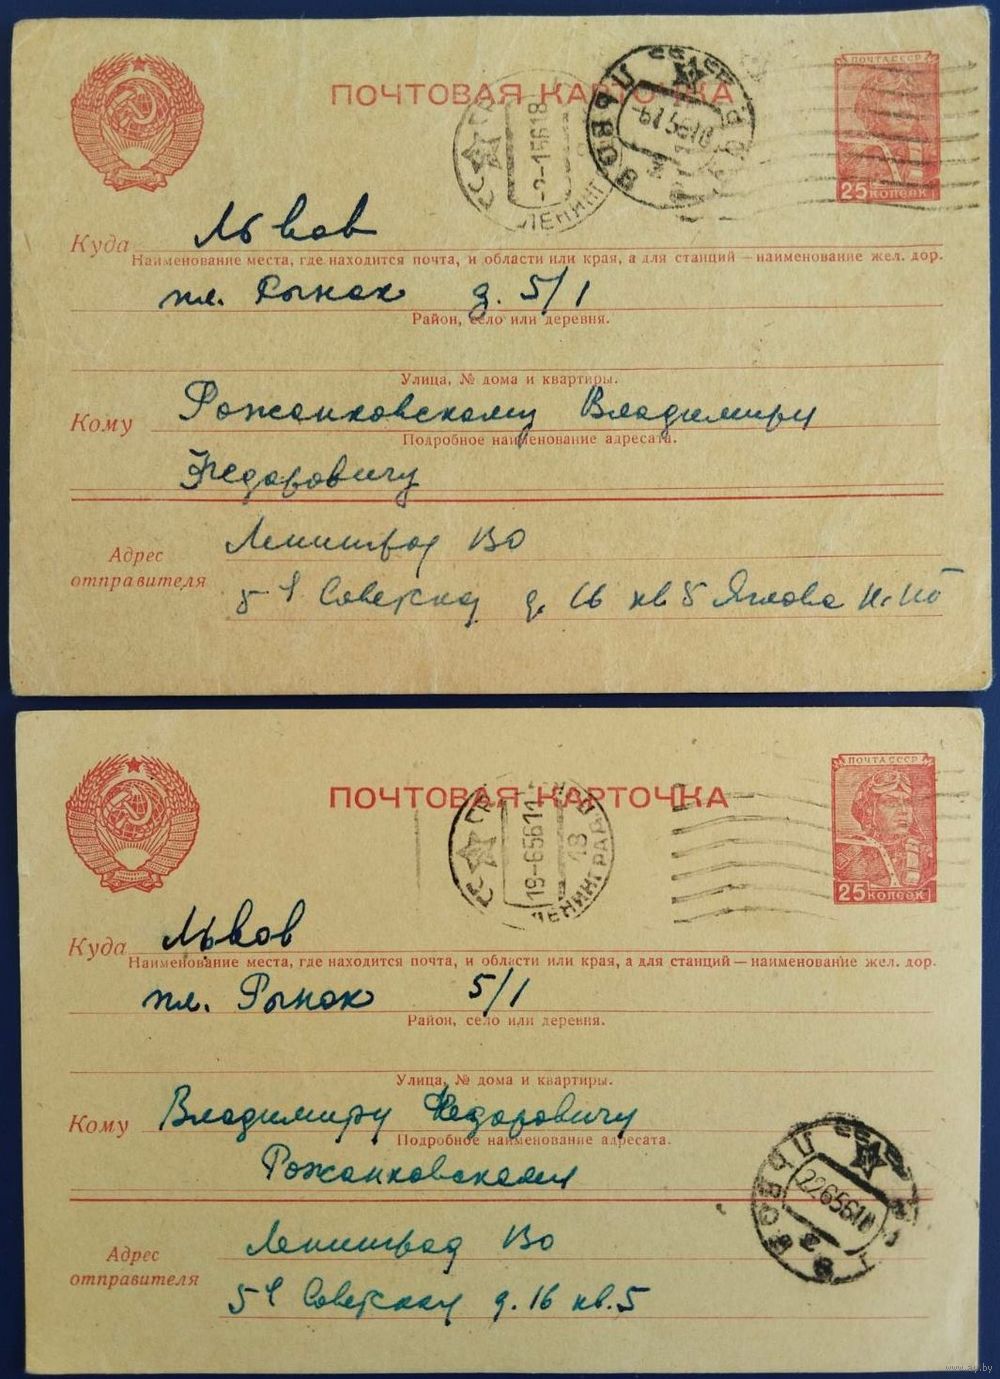 ПОЧТОВАЯ КАРТОЧКА
ПОЧТА СССР
25 КОПЕЕК
ЛЕНИНГРАД
ЛЬВОВ
Куда Львов
Наименование места, где находится почта, и области или края, а для станций — наименование жел. дор.
пл. Рынок д. 5/1
Район, село или деревня.
Улица, № дома и квартиры.
Кому Рожанковскому Владимиру
Подробное наименование адресата.
Федоровичу
Адрес отправителя
Ленинград
5 Советская д. 16 кв 5 Яглова
ПОЧТОВАЯ КАРТОЧКА
ПОЧТА СССР
25 КОПЕЕК
19-65611
18
ЛЕНИНГРАД
Куда Львов
Наименование места, где находится почта, и области или края, а для станций — наименование жел. дор.
пл. Рынок 5/1
Район, село или деревня.
Улица, № дома и квартиры.
Кому Владимиру Федоровичу
Подробное наименование адресата.
Рожанковскому
ЛЬВОВ
2265618
Адрес отправителя
Ленинград
5 Советская д. 16 кв. 5
www.ay.by